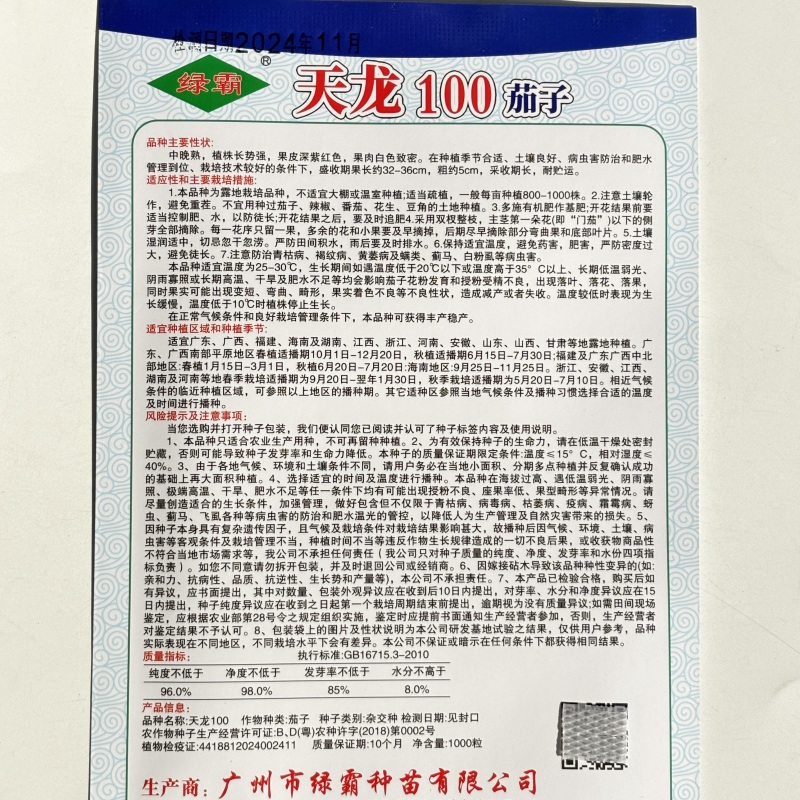 检测日期2024年11月
绿霸
®
天龙 100 茄子
品种主要性状:
中晚熟，植株长势强，果皮深紫红色，果肉白色致密。在种植季节合适、土壤良好、病虫害防治和肥水
管理到位、栽培技术较好的条件下，盛收期果长约32-36cm，粗约5cm，采收期长，耐贮运。
适应性和主要栽培措施:
1.本品种为露地栽培品种，不适宜大棚或温室种植;适当疏植，一般每亩种植800-1000株。2.注意土壤轮
作，避免重茬。不宜用种过茄子、辣椒、番茄、花生、豆角的土地种植。3.多施有机肥作基肥;开花结果前要
适当控制肥、水，以防徒长;开花结果之后，要及时追肥4.采用双杈整枝，主茎第一朵花(即“门茄”)以下的侧
芽全部摘除。每一花序只留一果，多余的花和小果要及早摘掉，后期尽早摘除部分弯曲果和底部叶片。5.土壤
湿润适中，切忌忽干忽涝。严防田间积水，雨后要及时排水。6.保持适宜温度，避免药害，肥害，严防密度过
大，避免徒长。7.注意防治青枯病、褐纹病、黄萎病及螨类、蓟马、白粉虱等病虫害。
本品种适宜温度为25-30℃，生长期间如遇温度低于20℃以下或温度高于35°C以上、长期低温弱光、
阴雨寡照或长期高温、干旱及肥水不足等均会影响茄子花粉发育和授粉受精不良，出现落叶、落花、落果，
同时果实可能出现变短、弯曲、畸形，果实着色不良等不良性状，造成减产或者失收。温度较低时表现为生
长缓慢，温度低于10℃时植株停止生长。
在正常气候条件和良好栽培管理条件下，本品种可获得丰产稳产。
适宜种植区域和种植季节:
适宜广东、广西、福建、海南及湖南、江西、浙江、河南、安徽、山东、山西、甘肃等地露地种植。广
东、广西南部平原地区春植适播期10月1日-12月20日，秋植适播期6月15日-7月30日;福建及广东广西中北
部地区:春植1月15日-3月1日，秋植6月20日-7月20日:海南地区:9月25日-11月25日。浙江、安徽、江西、
湖南及河南等地春季栽培适播期为9月20日-翌年1月30日，秋季栽培适播期为5月20日-7月10日。相近气候
条件的临近种植区域，可参照以上地区的播种期。其它适种区参照当地气候条件及播种习惯选择合适的温度
及时间进行播种。
风险提示及注意事项:
当您选购并打开种子包装，我们便认同您已阅读并认可了种子标签内容及使用说明。
1、本品种只适合农业生产用种，不可再留种种植。2、为有效保持种子的生命力，请在低温干燥处密封
贮藏，否则可能导致种子发芽率和生命力降低。本种子的质量保证期限定条件:温度≤15°C，相对湿度≤
40%。3、由于各地气候、环境和土壤条件不同，请用户务必在当地小面积、分期多点种植并反复确认成功
的基础上再大面积种植。4、选择适宜的时间及温度进行播种。本品种在海拔过高、遇低温弱光、阴雨寡
照、极端高温、干旱、肥水不足等任一条件下均有可能出现授粉不良、座果率低、果型畸形等异常情况。请
尽量创造适合的生长条件，加强管理，做好包含但不仅限于青枯病、病毒病、枯萎病、疫病、霜霉病、蚜
虫、蓟马、飞虱各种等病虫害的防治和肥水温光的管控，以降低人为生产管理及自然灾害带来的损失。5、
因种子本身具有复杂遗传因子，且气候及栽培条件对栽培结果影响甚大，故播种后因气候、环境、土壤、病
虫害等客观条件及栽培管理不当，种植时间不当等违反作物生长规律造成的一切不良后果，或收获物商品性
不符合当地市场需求等，我公司不承担任何责任（我公司只对种子质量的纯度、净度、发芽率和水份四项指
标负责）。如您不同意请勿拆开包装，并及时退回公司或经销商。6、因嫁接砧木导致该品种种性变异的(如:
亲和力、抗病性、品质、抗逆性、生长势和产量等)，本公司不承担责任。7、本产品已检验合格，购买后如
有异议，应书面提出，其中对数量、包装外观异议应在收到后10日内提出，对芽率、水分和净度异议应在15
日内提出，种子纯度异议应在收到之日起第一个栽培周期结束前提出，逾期视为没有质量异议;如需田间现场
鉴定，应根据农业部第28号令之规定组织实施，鉴定时应提前书面通知生产经营者参加，否则，生产经营者
对鉴定结果不予认可。8、包装袋上的图片及性状说明为本公司研发基地试验之结果，仅供用户参考，品种
实际表现在不同地区、不同栽培水平下会有差异。本公司不保证或暗示在任何条件下都获得相同结果。
质量指标: 执行标准:GB16715.3-2010
纯度不低于 净度不低于 发芽率不低于 水分不高于
96.0% 98.0% 85% 8.0%
产品信息:
品种名称:天龙100 作物种类:茄子 种子类别:杂交种 检测日期:见封口
农作物种子生产经营许可证:B、D(粤)农种许字(2018)第0002号
植物检疫证:4418812024002411 质量保证期:10个月 净含量:1000粒
生产商: 广州市绿霸种苗有限公司